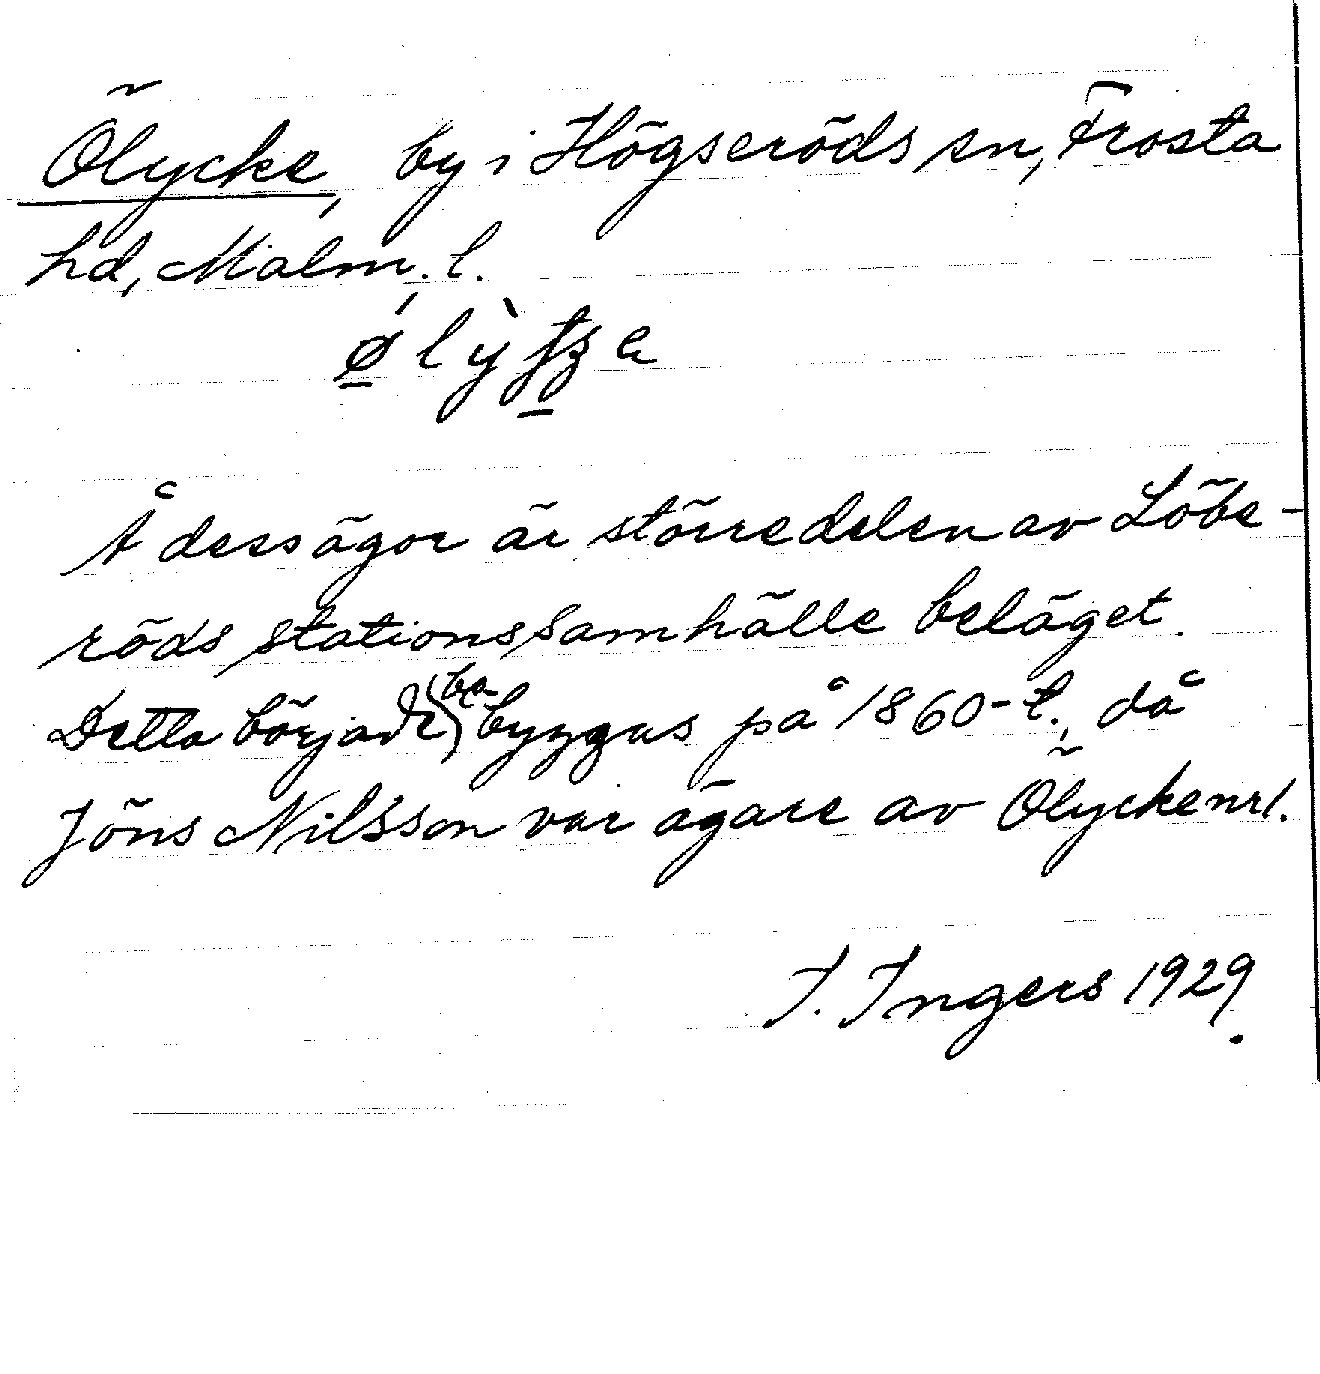 Ölycke, by i Högseröds sn, Frosta
hd, Malm. l.
Å dess ägor är större delen av Löbe-
röds stationssamhälle beläget.
Detta började (be)byggas på 1860-t., då
Jöns Nilsson var ägare av Ölycke nr 1.
I. Ingers 1929.